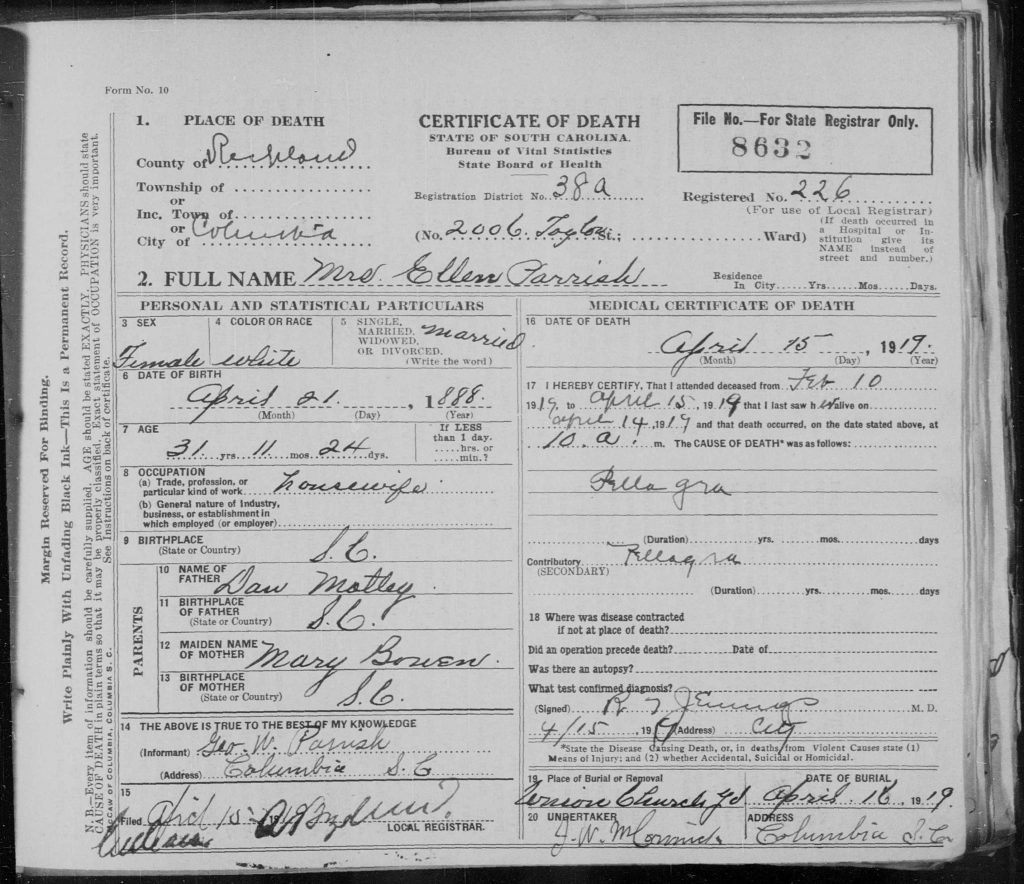 Form No. 10
1. PLACE OF DEATH
County of Richland
Township of
or
Inc. Town of
or
City of Columbia
CERTIFICATE OF DEATH
STATE OF SOUTH CAROLINA.
Bureau of Vital Statistics
State Board of Health
Registration District No. 38a
(No. 2006 Taylor St.; Ward)
File No.—For State Registrar Only.
8632
Registered No. 226
(For use of Local Registrar)
(If death occurred in
a Hospital or In-
stitution give its
NAME instead of
street and number.)
2. FULL NAME Mrs Ellen Parrish
Residence
In City Yrs. Mos. Days.
PERSONAL AND STATISTICAL PARTICULARS
3 SEX
Female
4 COLOR OR RACE
white
5 SINGLE,
MARRIED,
WIDOWED,
OR DIVORCED.
(Write the word)
Married
6 DATE OF BIRTH
April 21, 1888
(Month) (Day) (Year)
7 AGE
31 yrs. 11 mos. 24 dys.
If LESS
than 1 day.
hrs. or
min.?
8 OCCUPATION
(a) Trade, profession, or
particular kind of work housewife
(b) General nature of Industry,
business, or establishment in
which employed (or employer)
9 BIRTHPLACE
(State or Country) S.C.
PARENTS
10 NAME OF
FATHER Dan Motley
11 BIRTHPLACE
OF FATHER
(State or Country) S.C.
12 MAIDEN NAME
OF MOTHER Mary Bowen
13 BIRTHPLACE
OF MOTHER
(State or Country) S.C.
14 THE ABOVE IS TRUE TO THE BEST OF MY KNOWLEDGE
(Informant) Geo. W. Parrish
(Address) Columbia S.C
15
Filed April 15 19
LOCAL REGISTRAR.
MEDICAL CERTIFICATE OF DEATH
16 DATE OF DEATH
April 15, 1919.
(Month) (Day) (Year)
17 I HEREBY CERTIFY, That I attended deceased from Feb 10
1919, to April 15, 1919 that I last saw her alive on
April 14, 1919 and that death occurred, on the date stated above, at
10. a. m. The CAUSE OF DEATH* was as follows:
Pellagra
(Duration) yrs. mos. days
Contributory Pellagra
(SECONDARY)
(Duration) yrs. mos. days
18 Where was disease contracted
if not at place of death?
Did an operation precede death? Date of
Was there an autopsy?
What test confirmed diagnosis?
(Signed) Jennings M. D.
4/15 19 (Address) City
*State the Disease Causing Death, or, in deaths from Violent Causes state (1)
Means of Injury; and (2) whether Accidental, Suicidal or Homicidal.
19 Place of Burial or Removal
Union Church yd
DATE OF BURIAL
April 16 1919.
20 UNDERTAKER
J. W. McCormick
ADDRESS
Columbia S.C.
Margin Reserved For Binding.
Write Plainly With Unfading Black Ink—This Is a Permanent Record.
N.B.—Every item of information should be carefully supplied. AGE should be stated EXACTLY. PHYSICIANS should state
CAUSE OF DEATH in plain terms so that it may be properly classified. Exact statement of OCCUPATION is very important.
See Instructions on back of certificate.
McCAW OF COLUMBIA, COLUMBIA S. C.